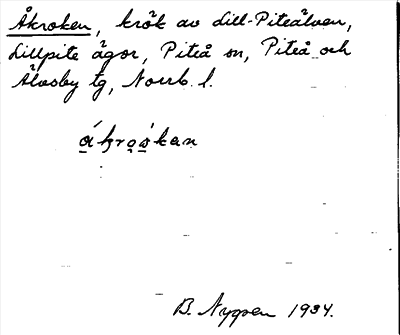 Åkroken, krök av Lill-Piteälven,
Lillpite ägor, Piteå sn, Piteå och
Älvsby tg, Norrb. l.
B. Nygren 1934.